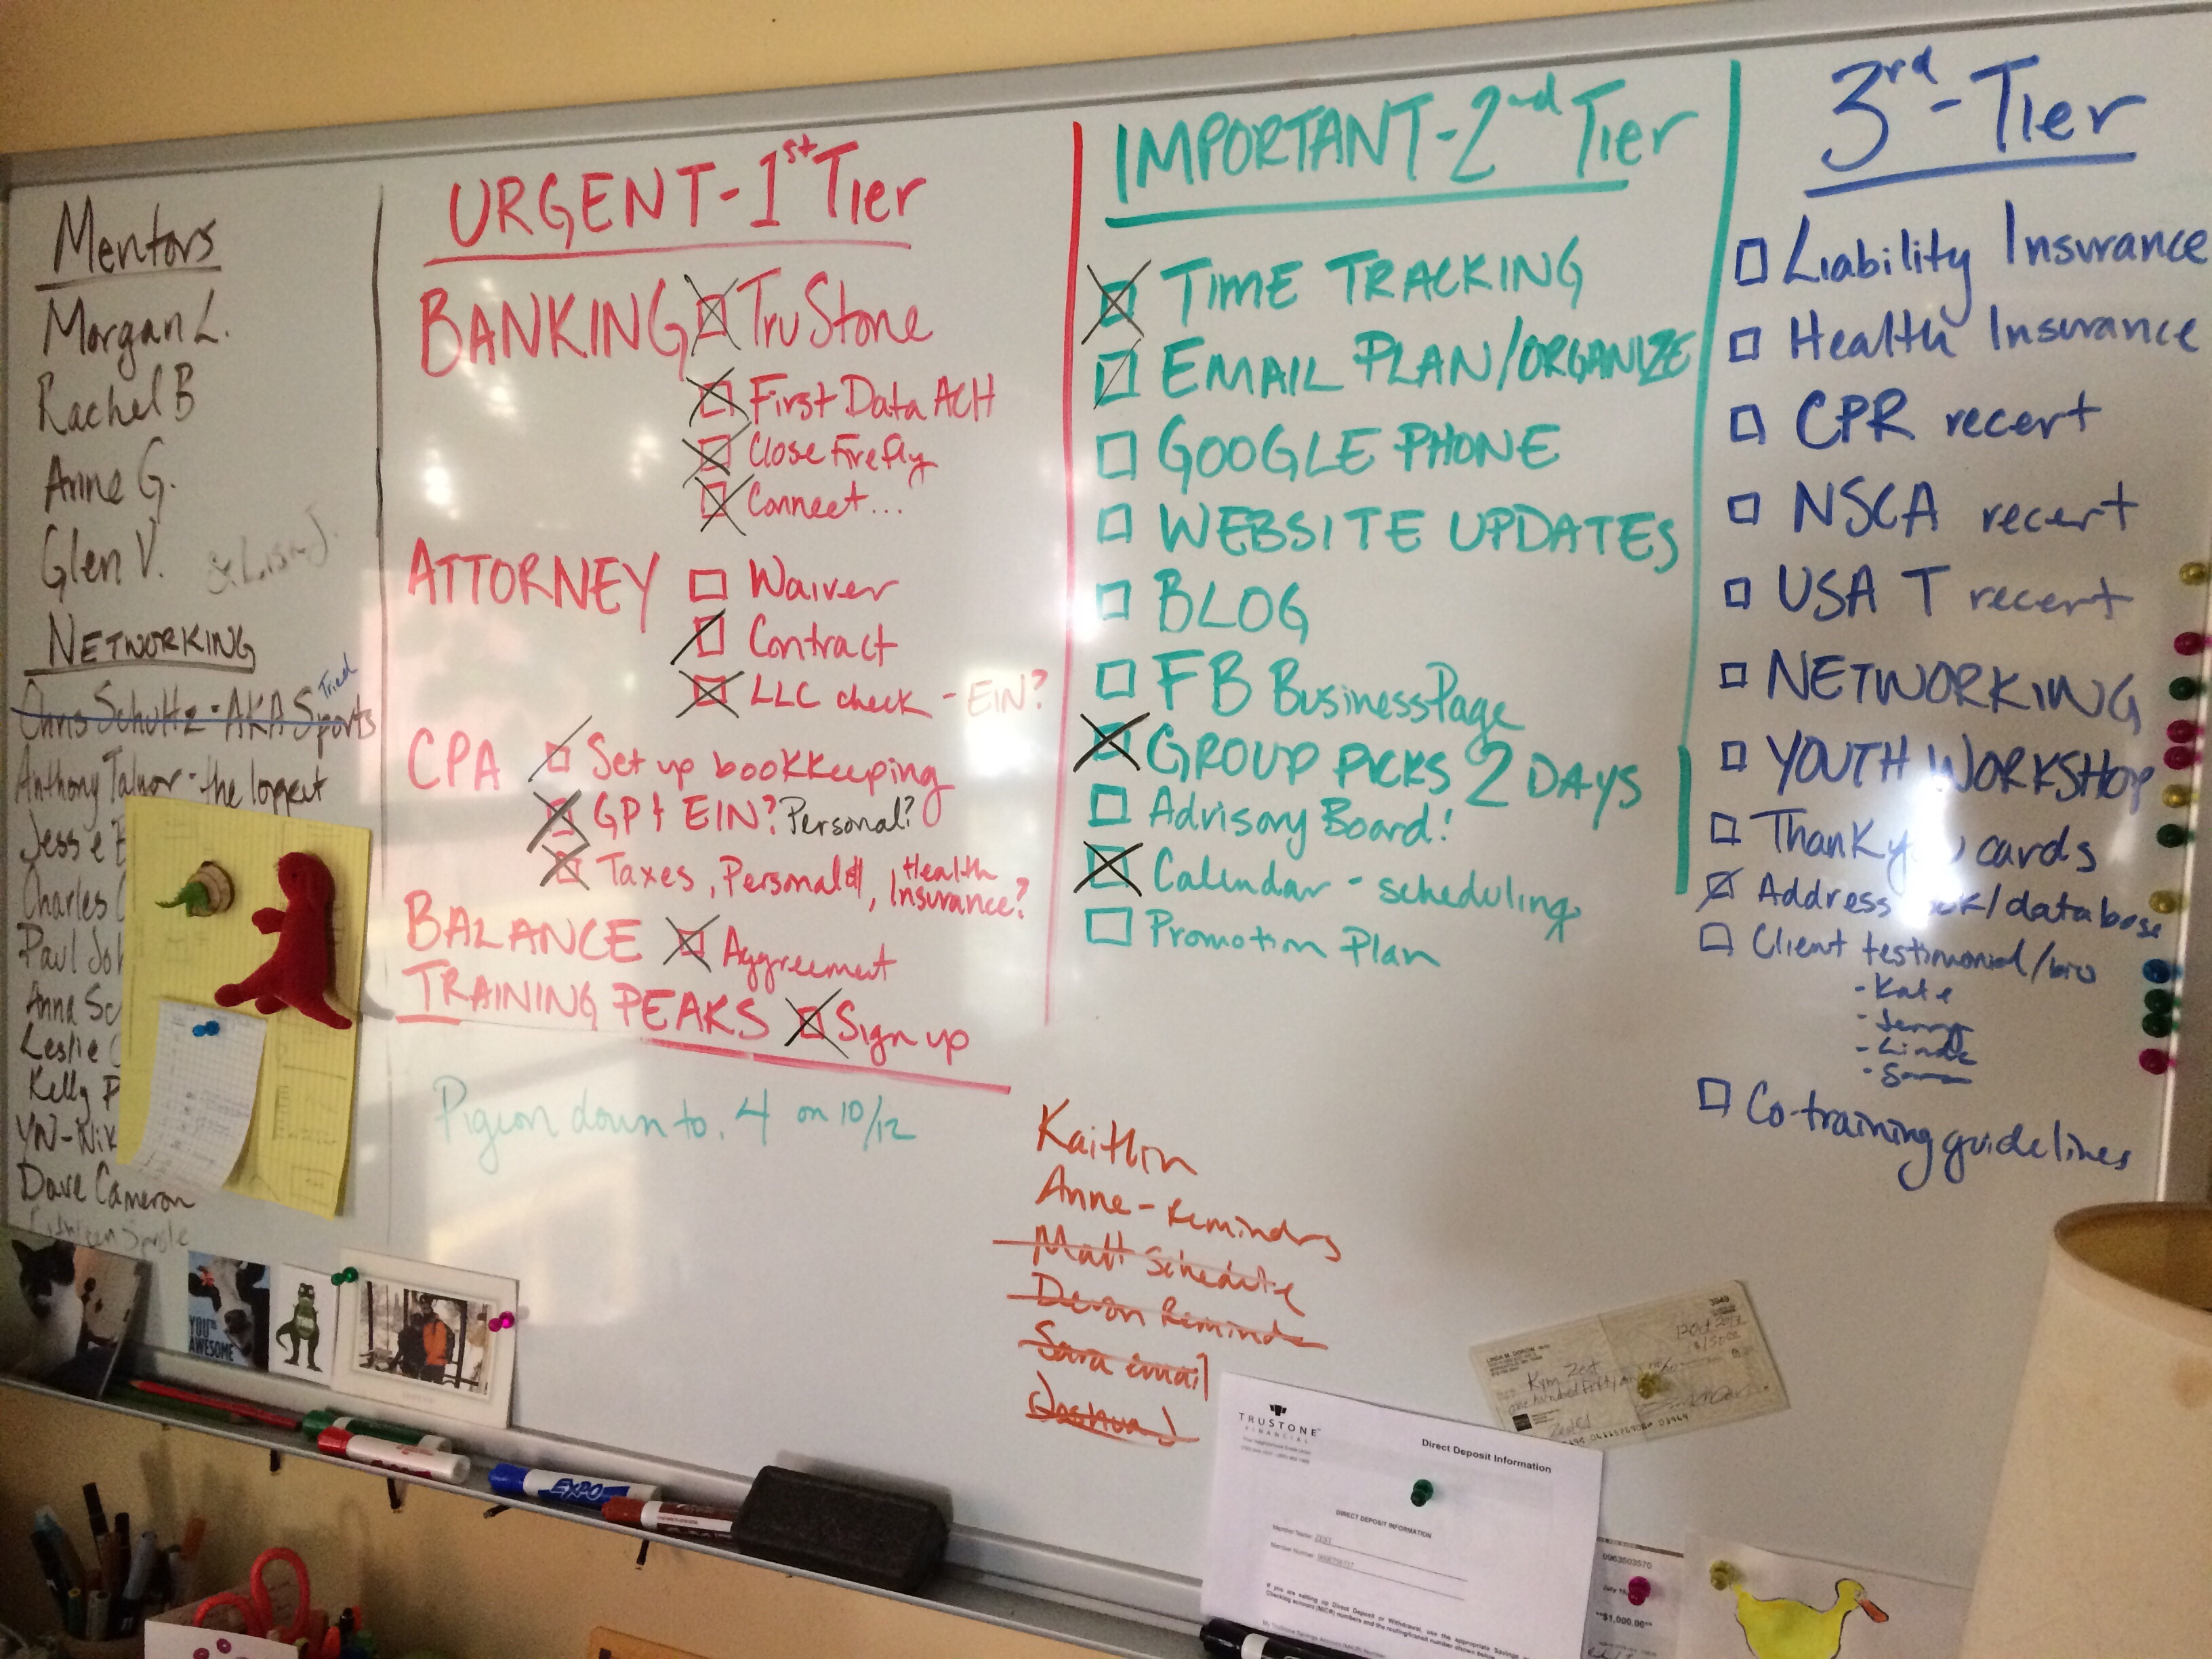 Mentors
Morgan L.
Rachel B
Anne G.
Glen V.
& Lisa J.
NETWORKING
Tried
Chris Schultz - AKA Sports
Anthony - the longest
Jesse
Charles
Paul Joh
Anna Sc
Leslie
Kelly P
YN-Nik
Dave Cameron
URGENT-1st Tier
BANKING TruStone
First Data ACH
Close Firefly
Connect...
ATTORNEY Waiver
Contract
LLC check - EIN?
CPA Set up bookkeeping
GP & EIN? Personal?
Taxes, Personal, Health Insurance?
BALANCE Aggreement
TRAINING PEAKS Sign up
Pigeon down to .4 on 10/12
IMPORTANT-2nd Tier
TIME TRACKING
EMAIL PLAN/ORGANIZE
GOOGLE PHONE
WEBSITE UPDATES
BLOG
FB BUSINESS Page
GROUP PICKS 2 DAYS
Advisory Board!
Calendar - scheduling
Promotion Plan
3rd-Tier
Liability Insurance
Health Insurance
CPR recert
NSCA recert
USA T recert
NETWORKING
YOUTH WORKSHOP
Thank you cards
Address book/database
Client testimonial/bio
- Kate
- Jenny
- Linda
Co-training guidelines
Kaitlin
Anne - Remindrs
Matt Schedule
Devon Reminder
Sara email
Joshua
YOU'RE
AWESOME
EXPO
TRUSTONE
FINANCIAL
Direct Deposit Information
DIRECT DEPOSIT INFORMATION
Member Name: ZEST
Member Number:
If you are setting up Direct Deposit or Withdrawal, use the appropriate Savings
3049
Kym Zest
0963503570
**$1,000.00**